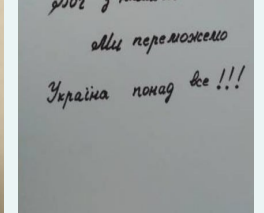 Ми переможемо
Україна понад все!!!